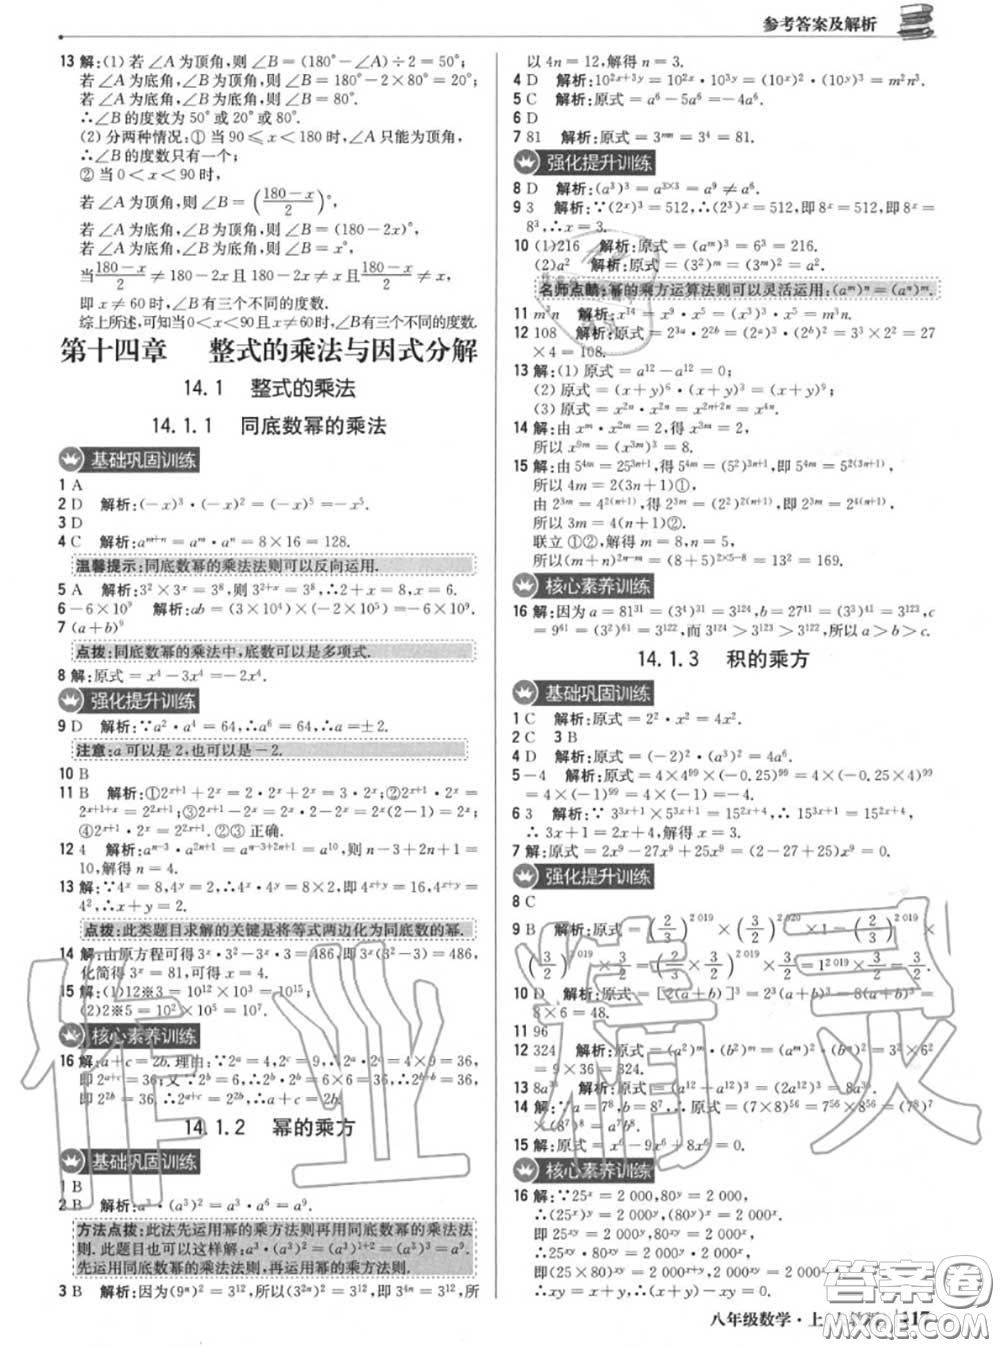 参考答案及解析
13 解:(1) 若∠A 为顶角,则∠B=(180°-∠A)÷2=50°;
若∠A 为底角,∠B 为顶角,则∠B=180°-2×80°=20°;
若∠A 为底角,∠B 为底角,则∠B=80°.
∴∠B 的度数为 50°或 20°或 80°.
(2) 分两种情况:① 当 90≤x<180 时,∠A 只能为顶角,
∴∠B 的度数只有一个;
② 当 0<x<90 时,
若∠A 为顶角,则∠B=((180-x)/2)°,
若∠A 为底角,∠B 为顶角,则∠B=(180-2x)°,
若∠A 为底角,∠B 为底角,则∠B=x°.
当(180-x)/2≠180-2x 且 180-2x≠x 且(180-x)/2≠x,
即 x≠60 时,∠B 有三个不同的度数.
综上所述,可知当 0<x<90 且 x≠60 时,∠B 有三个不同的度数.
第十四章 整式的乘法与因式分解
14.1 整式的乘法
14.1.1 同底数幂的乘法
基础巩固训练
1 A
2 D 解析:(-x)³·(-x)²=(-x)⁵=-x⁵.
3 D
4 C 解析:aᵐ⁺ⁿ=aᵐ·aⁿ=8×16=128.
温馨提示:同底数幂的乘法法则可以反向运用.
5 A 解析:3²×3ˣ=3⁸,则 3²⁺ˣ=3⁸,∴2+x=8,x=6.
6 -6×10⁹ 解析:ab=(3×10⁴)×(-2×10⁵)=-6×10⁹.
7 (a+b)⁹
点拨:同底数幂的乘法中,底数可以是多项式.
8 解:原式=x⁴-3x⁴=-2x⁴.
强化提升训练
9 D 解析:∵a²·a⁴=64,∴a⁶=64,∴a=±2.
注意:a 可以是 2,也可以是-2.
10 B
11 B 解析:①2ˣ⁺¹+2ˣ=2·2ˣ+2ˣ=3·2ˣ;②2ˣ⁺¹·2ˣ=
2ˣ⁺¹⁺ˣ=2²ˣ⁺¹;③2ˣ⁺¹-2ˣ=2ˣ·2-2ˣ=2ˣ(2-1)=2ˣ;
④2ˣ⁺¹·2ˣ=2²ˣ⁺¹.②③ 正确.
12 4 解析:aⁿ⁻³·a²ⁿ⁺¹=aⁿ⁻³⁺²ⁿ⁺¹=a¹⁰,则 n-3+2n+1=
10,解得 n=4.
13 解:∵4ˣ=8,4ʸ=2,∴4ˣ·4ʸ=8×2,即 4ˣ⁺ʸ=16,4ˣ⁺ʸ=
4²,∴x+y=2.
点拨:此类题目求解的关键是将等式两边化为同底数的幂.
14 解:由原方程可得 3ˣ·3²-3ˣ·3=486,即 3ˣ(3²-3)=486,
化简得 3ˣ=81,可得 x=4.
15 解:(1)12※3=10¹²×10³=10¹⁵;
(2)2※5=10²×10⁵=10⁷.
核心素养训练
16 解:a+c=2b.理由:∵2ᵃ=4,2ᶜ=9,∴2ᵃ·2ᶜ=4×9=36,
即 2ᵃ⁺ᶜ=36;又∵2ᵇ=6,∴2ᵇ·2ᵇ=6×6=36,
即 2²ᵇ=36,∴2ᵃ⁺ᶜ=2²ᵇ,∴a+c=2b.
14.1.2 幂的乘方
基础巩固训练
1 B
2 B 解析:a³·(a³)²=a³·a⁶=a⁹.
方法点拨:此法先运用幂的乘方法则再用同底数幂的乘法法
则.此题目也可以这样解:a³·(a³)²=(a³)¹⁺²=(a³)³=a⁹.
先运用同底数幂的乘法法则,再运用幂的乘方法则.
3 B 解析:因为(9ⁿ)²=3¹²,所以(3²ⁿ)²=3¹²,即 3⁴ⁿ=3¹²,所
以 4n=12,解得 n=3.
4 D 解析:10²ˣ⁺³ʸ=10²ˣ·10³ʸ=(10ˣ)²·(10ʸ)³=m²n³.
5 C 解析:原式=a⁶-5a⁶=-4a⁶.
6 D
7 81 解析:原式=3ᵐⁿ=3⁴=81.
强化提升训练
8 D 解析:(a³)³=a³ˣ³=a⁹≠a⁶.
9 3 解析:∵(2ˣ)³=512,∴(2³)ˣ=512,即 8ˣ=512,8ˣ=
8³,∴x=3.
10 (1)216 解析:原式=(aᵐ)³=6³=216.
(2)a² 解析:原式=(3²)ᵐ=(3ᵐ)²=a².
名师点睛:幂的乘方运算法则可以灵活运用:(aᵐ)ⁿ=(aⁿ)ᵐ.
11 m³n 解析:x¹⁴=x⁹·x⁵=(x³)³·x⁵=m³n.
12 108 解析:原式=2³ᵃ·2²ᵇ=(2ᵃ)³·(2ᵇ)²=3³×2²=27
×4=108.
13 解:(1) 原式=a¹²-a¹²=0;
(2) 原式=(x+y)⁶·(x+y)³=(x+y)⁹;
(3) 原式=x²ⁿ·x²ⁿ=x²ⁿ⁺²ⁿ=x⁴ⁿ.
14 解:由 xᵐ·x²ᵐ=2,得 x³ᵐ=2,
所以 x⁹ᵐ=(x³ᵐ)³=8.
15 解:由 5⁴ᵐ=25³ⁿ⁺¹,得 5⁴ᵐ=(5²)³ⁿ⁺¹,即 5⁴ᵐ=5²⁽³ⁿ⁺¹⁾,
所以 4m=2(3n+1)①,
由 2³ᵐ=4²⁽ⁿ⁺¹⁾,得 2³ᵐ=(2²)²⁽ⁿ⁺¹⁾,即 2³ᵐ=2⁴⁽ⁿ⁺¹⁾,
所以 3m=4(n+1)②.
联立 ①② 解得 m=8,n=5,
所以(m+n)²ⁿ⁻ᵐ=(8+5)²ˣ⁵⁻⁸=13²=169.
核心素养训练
16 解:因为 a=81³¹=(3⁴)³¹=3¹²⁴,b=27⁴¹=(3³)⁴¹=3¹²³,c
=9⁶¹=(3²)⁶¹=3¹²²,而 3¹²⁴>3¹²³>3¹²²,所以 a>b>c.
14.1.3 积的乘方
基础巩固训练
1 C 解析:原式=2²·x²=4x².
2 C 3 B
4 D 解析:原式=(-2)²·(a³)²=4a⁶.
5 -4 解析:原式=4×4⁹⁹×(-0.25)⁹⁹=4×(-0.25×4)⁹⁹
=4×(-1)⁹⁹=4×(-1)=-4.
6 3 解析:∵3³ˣ⁺¹×5³ˣ⁺¹=15²ˣ⁺⁴,∴15³ˣ⁺¹=15²ˣ⁺⁴,
∴3x+1=2x+4,解得 x=3.
7 解:原式=2x⁹-27x⁹+25x⁹=0.
强化提升训练
8 C
9 B 解析:原式=(2/3)²⁰¹⁹×(3/2)²⁰²⁰×1=(2/3)²⁰¹⁹×
(3/2)²⁰¹⁹×3/2=(2/3×3/2)²⁰¹⁹×3/2=1²⁰¹⁹×3/2=3/2.
10 D 解析:原式=[2(a+b)]³=2³(a+b)³=8(a+b)³=
8×6=48.
11 96
12 324 解析:原式=(a²)ᵐ·(b²)ᵐ=(aᵐ)²·(bᵐ)²
=9×36=324.
14 解:∵a=7⁸,b=8⁷,∴原式=(7×8)⁵⁶=7⁵⁶×8⁵⁶=
15 解:原式=x⁶-9x⁶+8x⁶=0.
核心素养训练
16 解:∵25ˣ=2 000,80ʸ=2 000,
∴(25ˣ)ʸ=2 000ʸ,(80ʸ)ˣ=2 000ˣ,
即 25ˣʸ=2 000ʸ,80ˣʸ=2 000ˣ,
∴25ˣʸ·80ˣʸ=2 000ʸ·2 000ˣ,
即(25×80)ˣʸ=2 000ˣ⁺ʸ,
∴xy=x+y,
八年级数学·上
117
作业精灵
答案卷